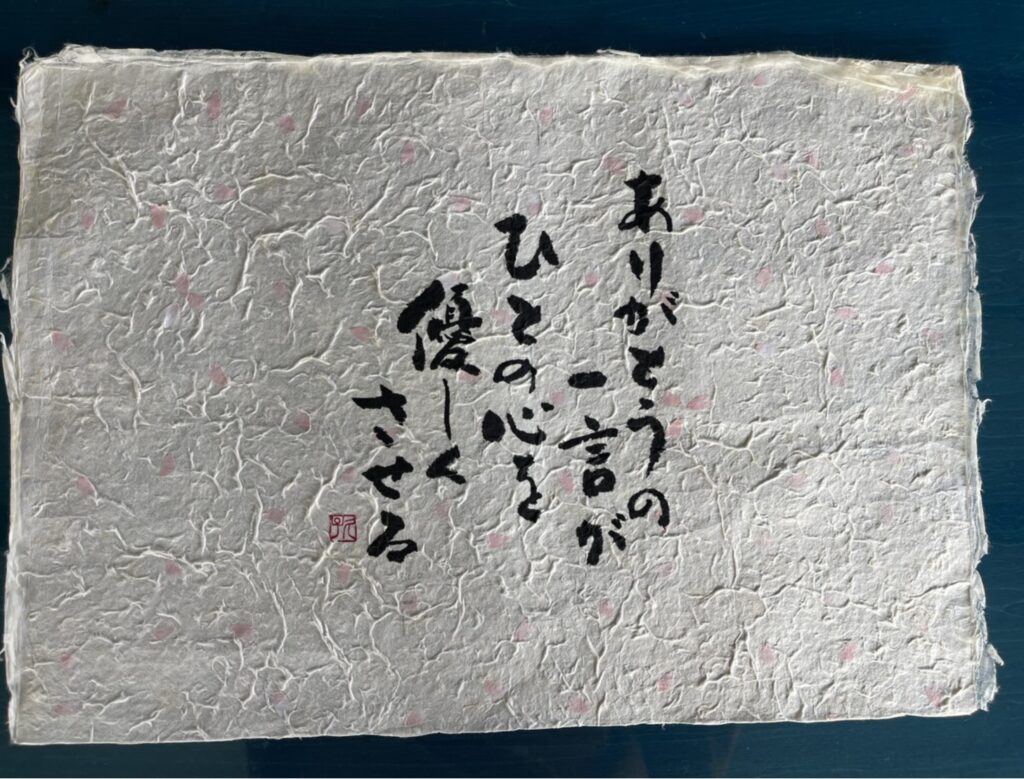 ありがとうの
一言が
ひとの心を
優しく
させる